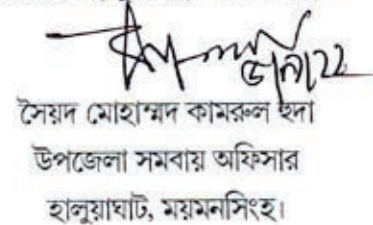 সৈয়দ মোহাম্মদ কামরুল হুদা
উপজেলা সমবায় অফিসার
হালুয়াঘাট, ময়মনসিংহ।